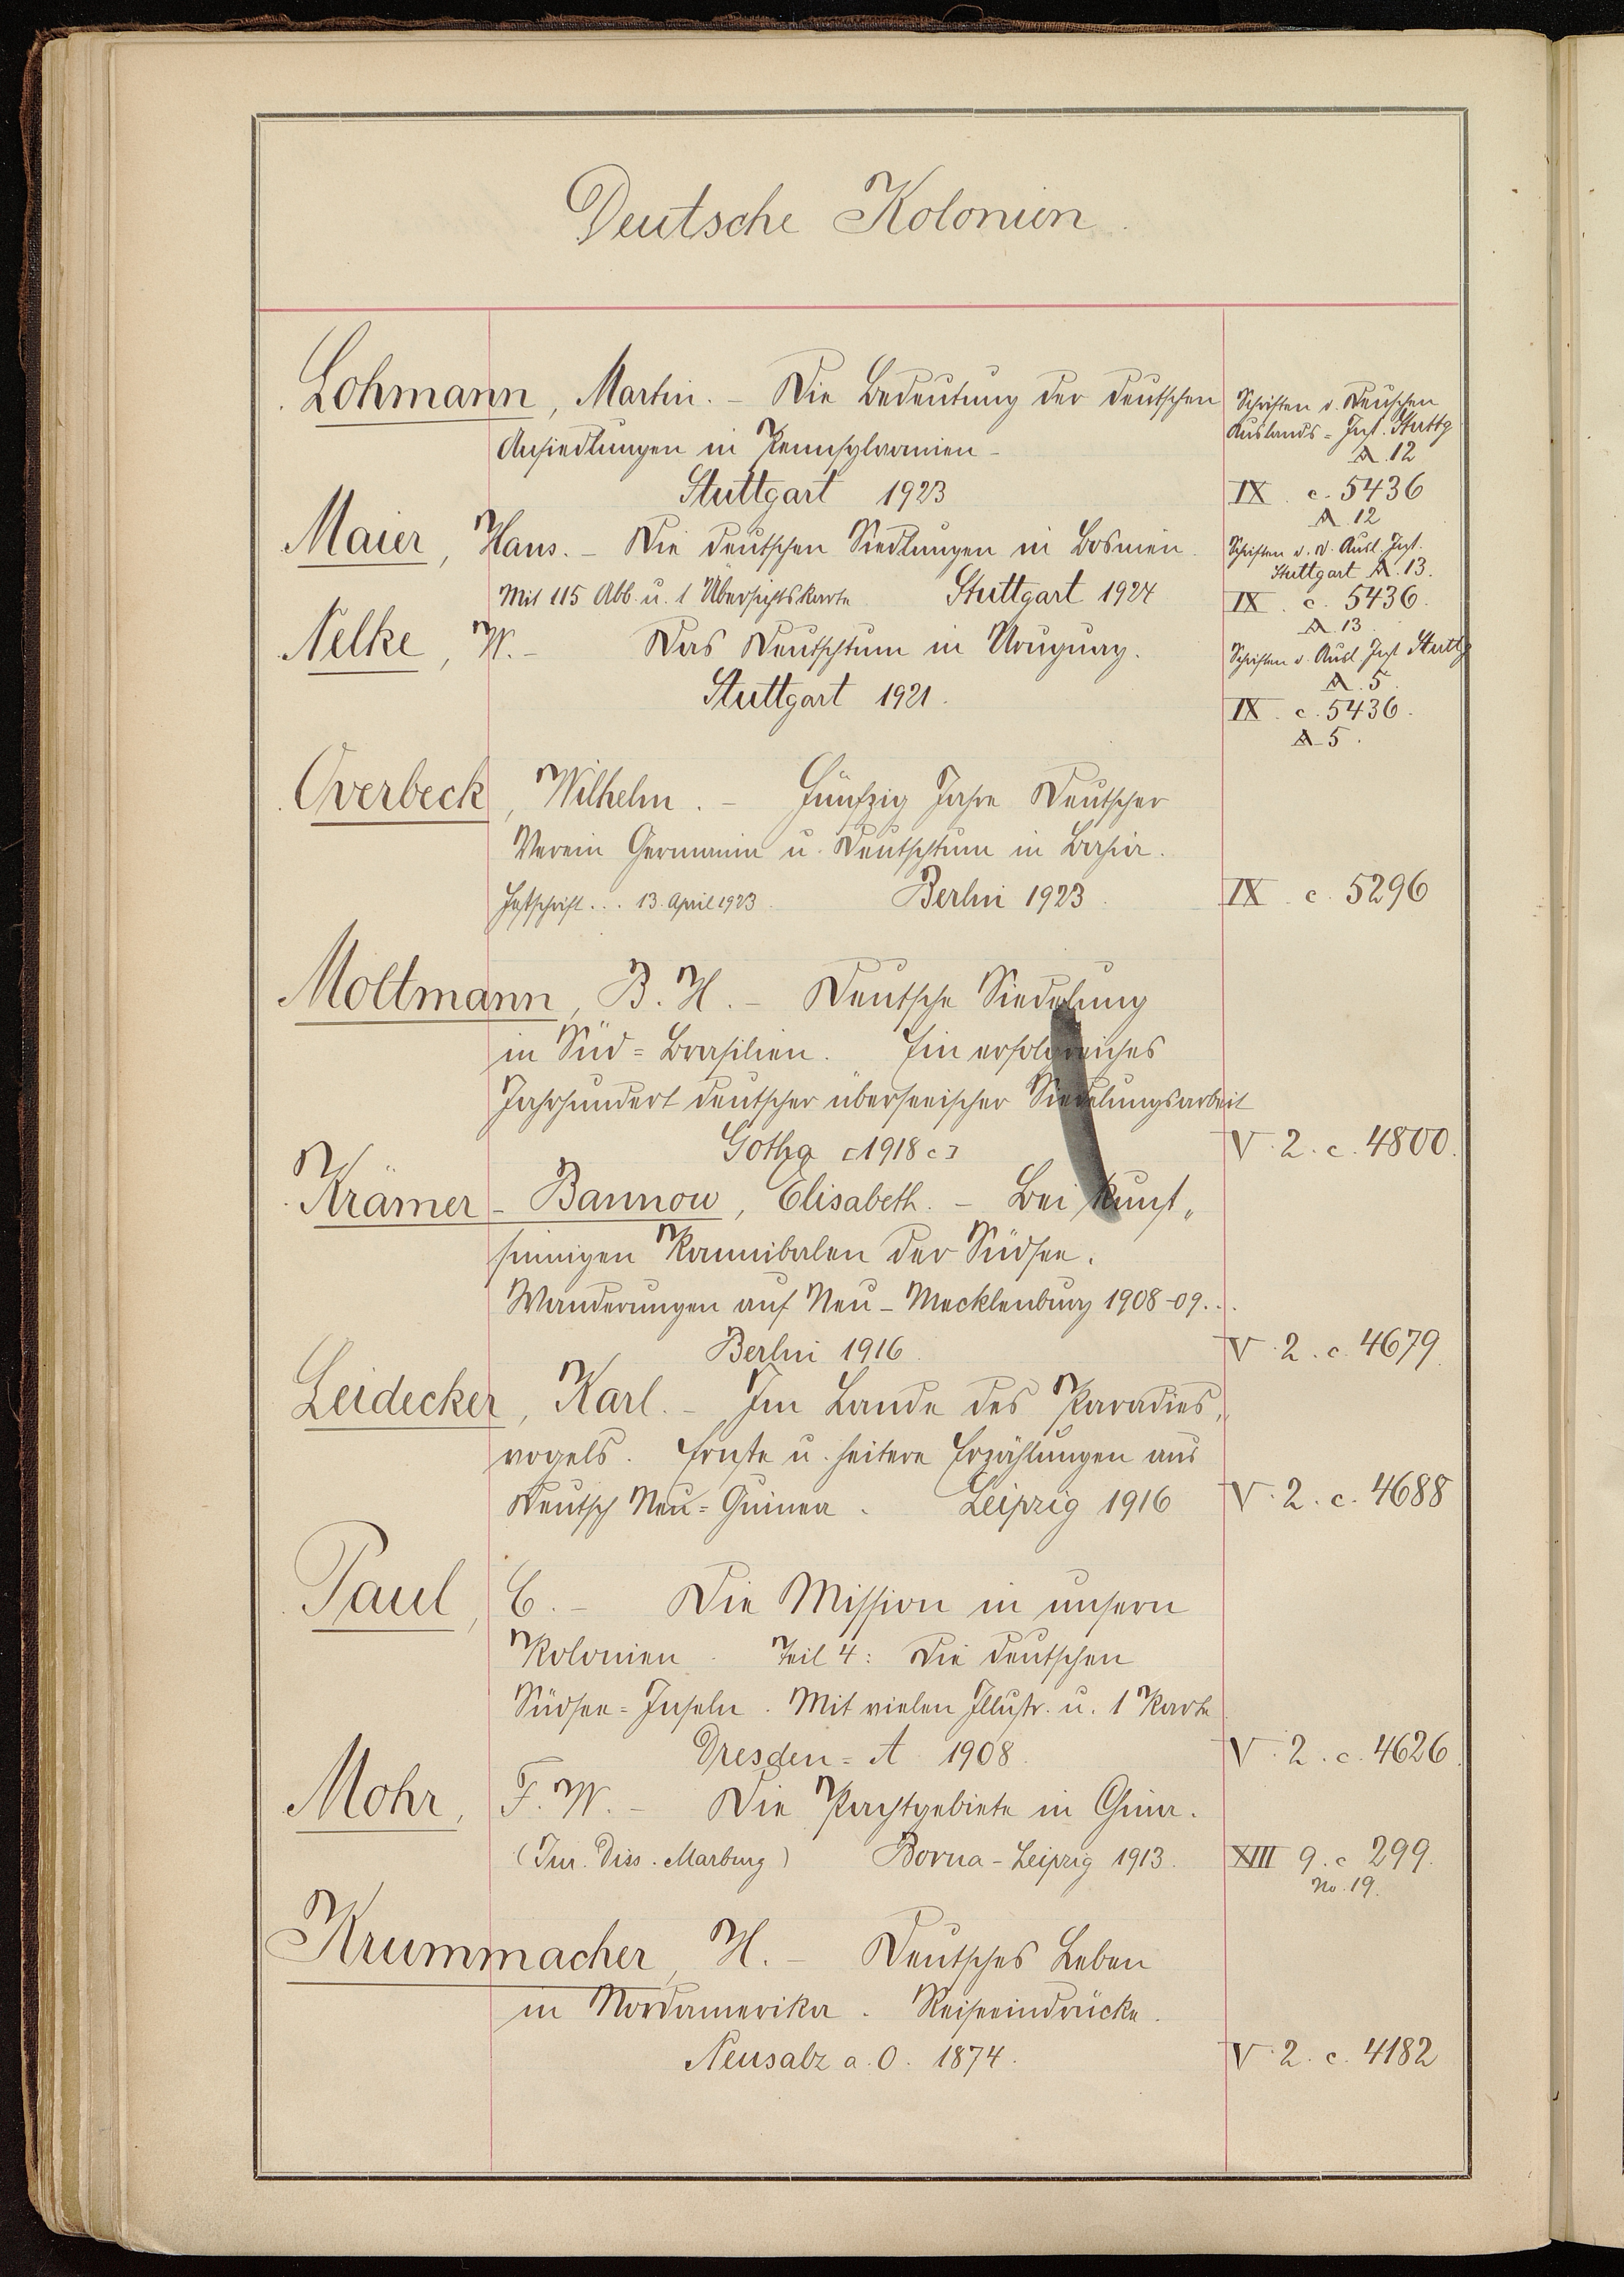 Deutsche Kolonien.
Lohmann, Martin. – Die Bedeutung der deutschen
Ansiedlungen in Pennsylvanien –
Stuttgart 1923
Schriften d. Deutschen
Auslands = Inst. Stuttg
A. 12
IX. c. 5436
A. 12
Maier, Hans. – Die deutschen Siedlungen in Bosnien.
Mit 115 Abb. u. 1 Übersichtskarte Stuttgart 1924
Schriften d. D. Ausl. Inst.
Stuttgart A. 13.
IX. c. 5436.
A. 13.
Nelke, W. – Das Deutschtum in Uruguay.
Stuttgart 1921.
Schriften d. Ausl Inst Stuttg
A. 5.
IX. c. 5436.
A 5.
Overbeck, Wilhelm. – Fünfzig Jahre Deutscher
Verein Germania u. Deutschtum in Bahia.
Festschrift... 13. April 1923. Berlin 1923. IX. c. 5296
Moltmann, B. H. – Deutsche Siedelung
in Süd = Brasilien. Ein erfolgreiches
Jahrhundert deutscher überseeischer Siedelungsarbeit
Gotha [1918 c] V. 2. c. 4800.
Krämer – Bannow, Elisabeth. – Bei kunst„
sinnigen Kannibalen der Südsee.
Wanderungen auf Neu – Mecklenburg 1908–09...
Berlin 1916. V. 2. c. 4679.
Leidecker, Karl. – Im Lande des Paradies„
vogels. Ernste u. heitere Erzählungen aus
Deutsch Neu = Guinea. Leipzig 1916 V. 2. c. 4688
Paul, C. – Die Mission in unsern
Kolonien. Teil 4: Die deutschen
Südsee = Inseln. Mit vielen Illustr. u. 1 Karte
Dresden = A. 1908. V. 2. c. 4626.
Mohr, F. W. – Die Pachtgebiete in China.
(Jur. Diss. Marburg) Borna – Leipzig 1913. XIII 9. c 299.
No. 19.
Krummacher, H. – Deutsches Leben
in Nordamerika. Reiseeindrücke.
Neusalz a. O. 1874. V. 2. c. 4182